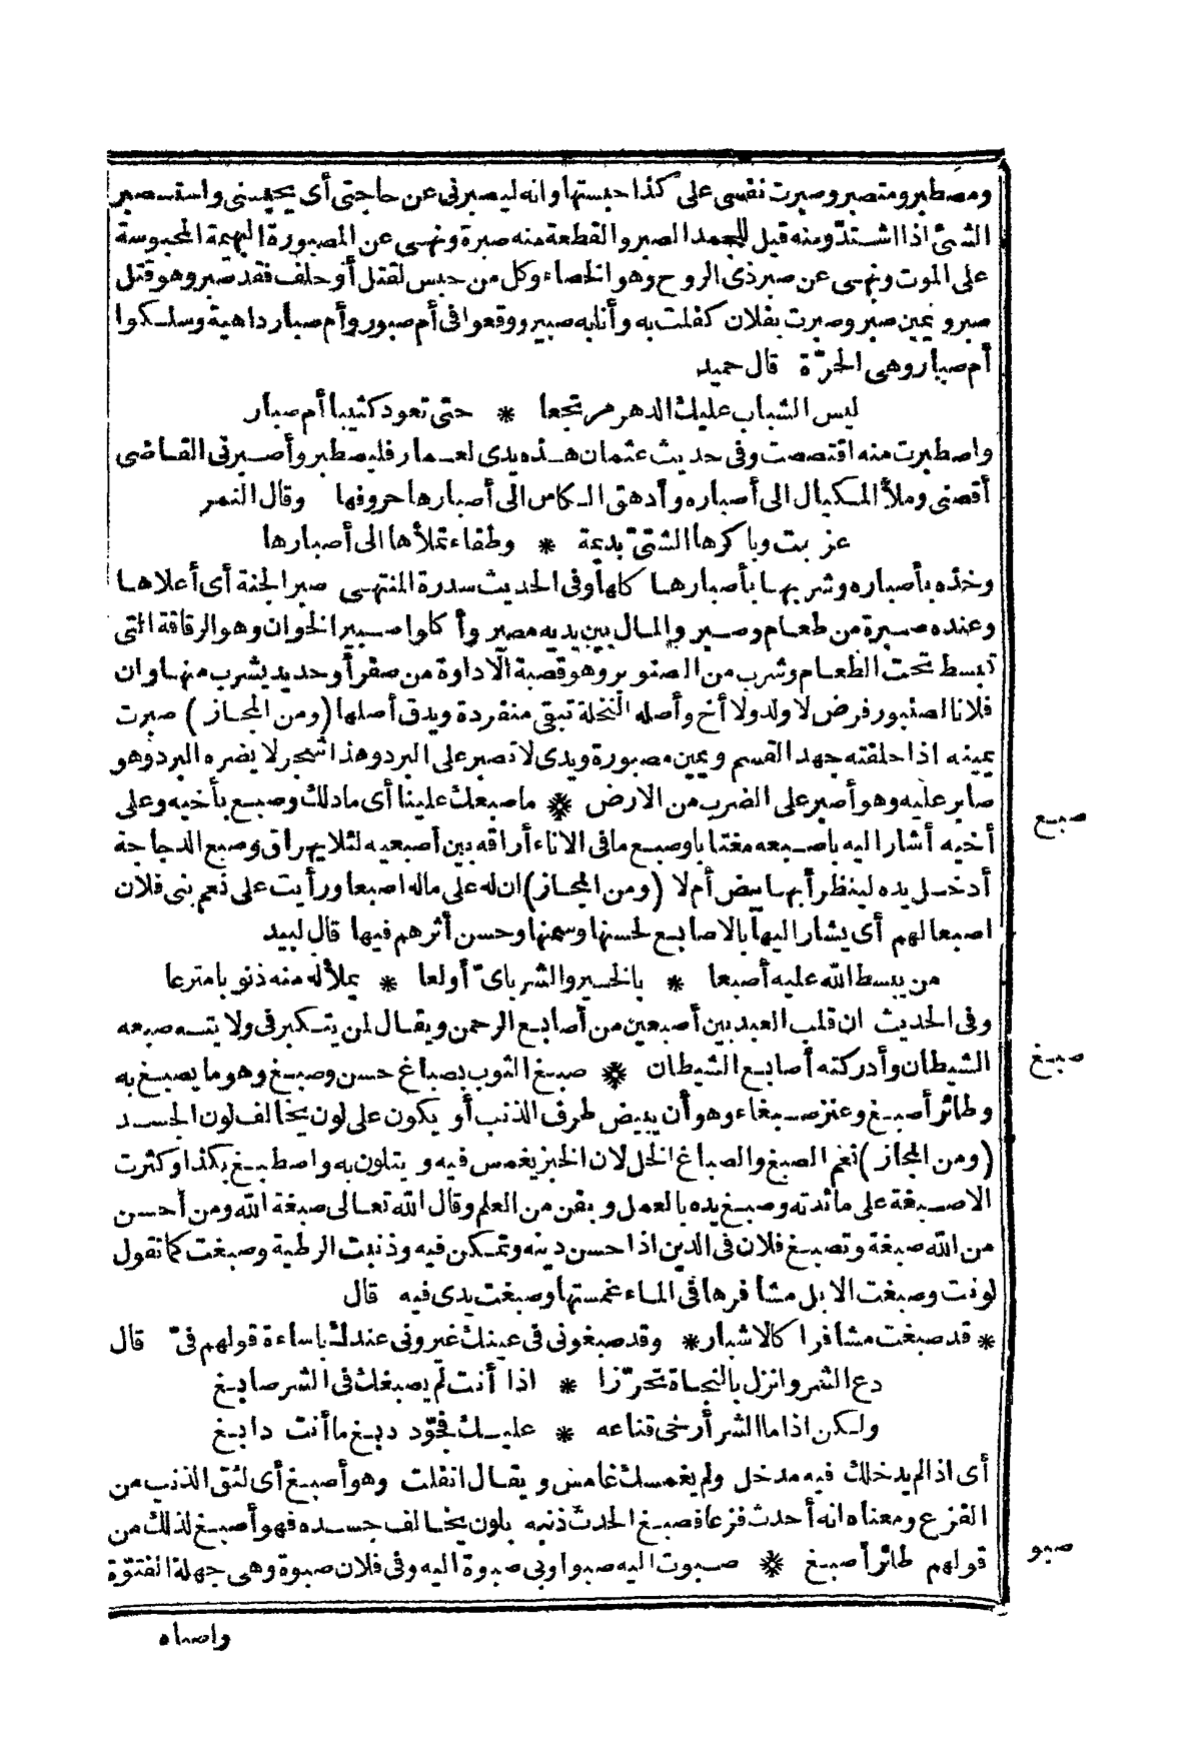 ومصطبر ومتصبر وصبرت نفسى على كذا حبستها وانه ليصبرنى عن حاجتى أى يحبسنى واستصبر
الشئ اذا اشتد ومنه قيل للجمد الصبر والقطعة منه صبرة ونهى عن المصبورة البهيمة المحبوسة
على الموت ونهى عن صبر ذى الروح وهو الخصاء وكل من حبس لقتل أو حلف فقد صبر وهو قتل
صبر ويمين صبر وصبرت بفلان كفلت به وأنا به صبير ووقعوا فى أم صبور وأم صبار داهية وسلكوا
أم صبار وهى الحرّة قال حميد
ليس الشباب عليك الدهر مرتجعا * حتى تعود كثيبا أم صبار
واصطبرت منه اقتصصت وفى حديث عثمان هذه يدى لعمار فليصطبر وأصبرنى القاضى
أقصنى وملأ المكيال الى أصباره وأدهق الكاس الى أصبارها حروفها وقال النمر
عزبت وباكرها الشتىّ بديمة * وطفاء تملأها الى أصبارها
وخذه بأصباره وشربها بأصبارها كلها وفى الحديث سدرة المنتهى صبر الجنة أى أعلاها
وعنده صبرة من طعام وصبر والمال بين يديه مصبر وأكلوا صبير الخوان وهو الرقاقة التى
تبسط تحت الطعام وشرب من الصنبور وهو قصبة الاداوة من صفر أو حديد يشرب منها وان
فلانا لصنبور فرض لا ولد ولا أخ وأصله النخلة تبقى منفردة ويدق أصلها (ومن المجاز) صبرت
يمينه اذا حلفته جهد القسم ويمين مصبورة ويدى لا تصبر على البرد وهذا شجر لا يضره البرد وهو
صابر عليه وهو أصبر على الضرب من الارض * ما صبعك علينا أى ما دلك وصبع بأخيه وعلى
صبع
أخيه أشار اليه باصبعه مغتابا وصبع ما فى الاناء أراقه بين أصبعيه لئلا يهراق وصبع الدجاجة
أدخل يده لينظر أبها بيض أم لا (ومن المجاز) ان له على ماله اصبعا ورأيت على نعم بنى فلان
اصبعا لهم أى يشار اليها بالاصابع لحسنها وسمنها وحسن أثرهم فيها قال لبيد
من يبسط الله عليه أصبعا * بالخير والشر باىّ أولعا * يملأ له منه ذنوبا مترعا
وفى الحديث ان قلب العبد بين أصبعين من أصابع الرحمن ويقال لمن يتكبر فى ولايته صبعه
الشيطان وأدركته أصابع الشيطان * صبغ الثوب بصباغ حسن وصبغ وهو ما يصبغ به
صبغ
وطائر أصبغ وعنز صبغاء وهو أن يبيض طرف الذنب أو يكون على لون يخالف لون الجسد
(ومن المجاز) نعم الصبغ والصباغ الخل لان الخبز يغمس فيه ويتلون به واصطبغ بكذا وكثرت
الاصبغة على مائدته وصبغ يده بالعمل وبفن من العلم وقال الله تعالى صبغة الله ومن أحسن
من الله صبغة وتصبغ فلان فى الدين اذا حسن دينه وتمكن فيه وذنبت الرطبة وصبغت كما تقول
لونت وصبغت الابل مشافرها فى الماء غمستها وصبغت يدى فيه قال
* قد صبغت مشافرا كالاشبار * وقد صبغونى فى عينك غيرونى عندك باساءة قولهم فىّ قال
دع الشر وانزل بالنجاة تحرّزا * اذا أنت لم يصبغك فى الشر صابغ
ولكن اذا ما الشر أرخى قناعه * عليك فجّود دبغ ما أنت دابغ
أى اذا لم يدخلك فيه مدخل ولم يغمسك غامس ويقال انفلت وهو أصبغ أى لثق الذنب من
الفزع ومعناه انه أحدث فزعا فصبغ الحدث ذنبه بلون يخالف جسده فهو أصبغ لذلك من
قولهم طائر أصبغ * صبوت اليه صبوا وبى صبوة اليه وفى فلان صبوة وهى جهلة الفتوّة
صبو
واصباه